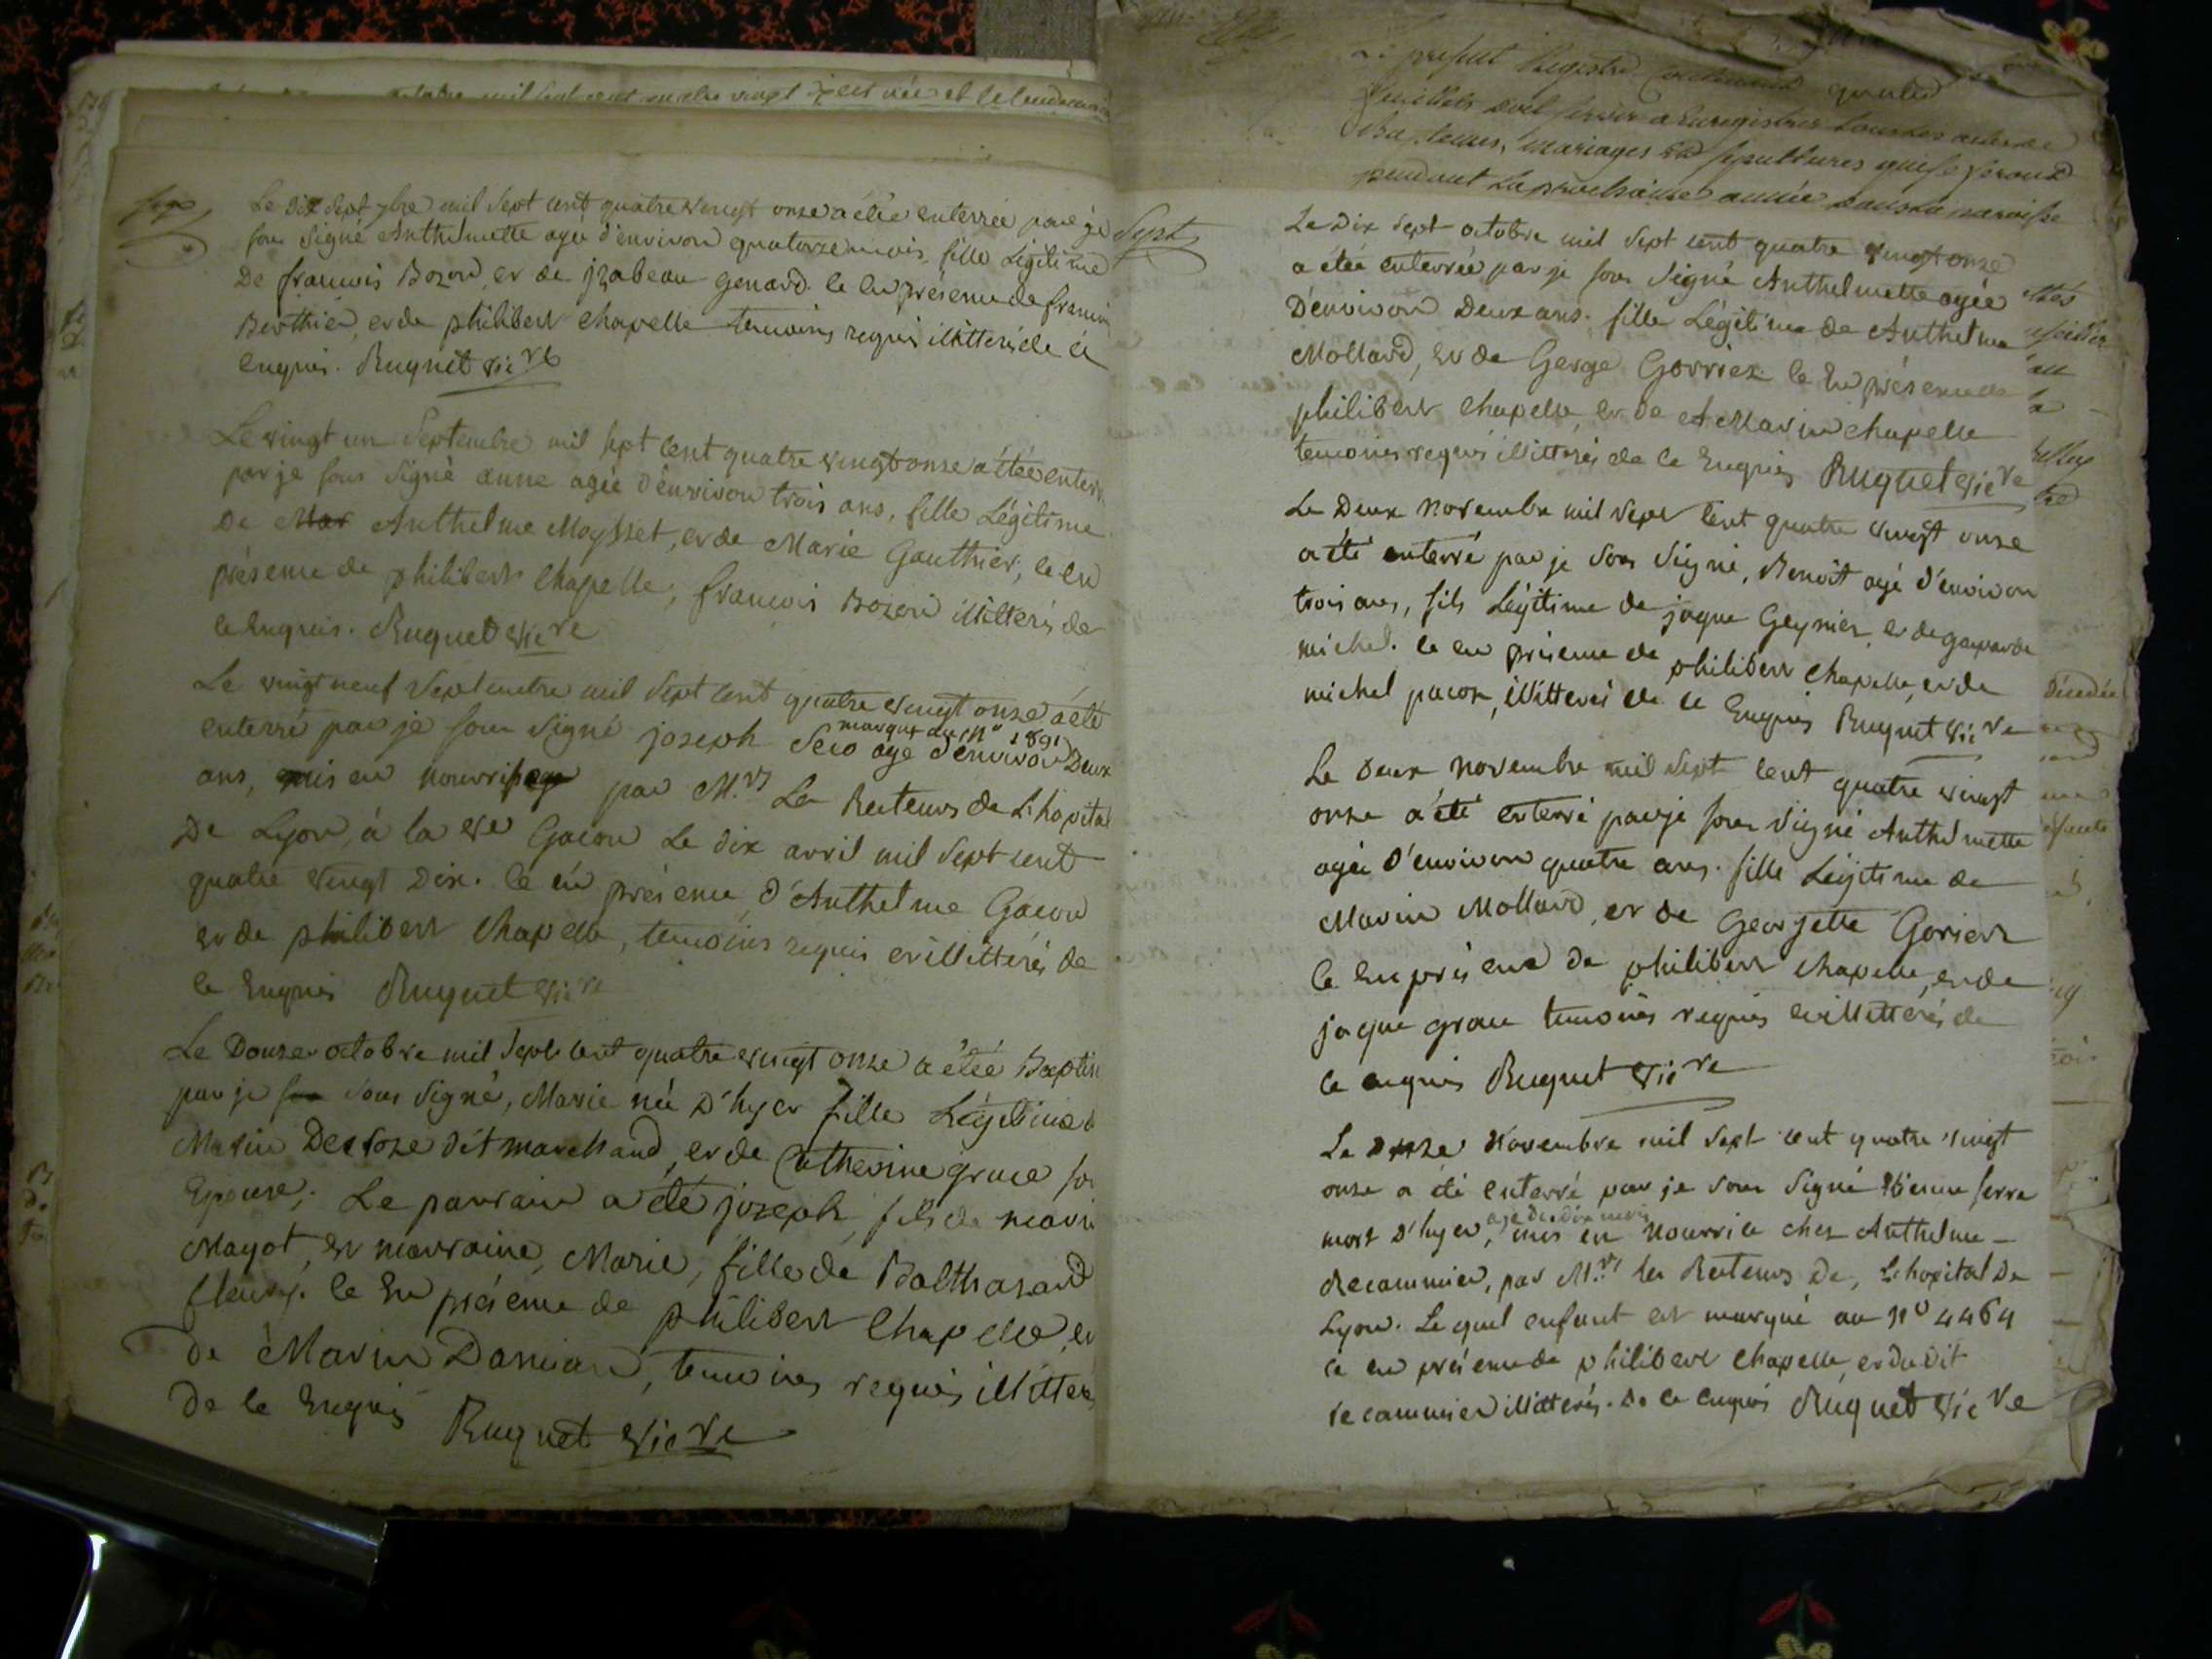 Le dix sept 7bre mil sept cent quatre vingt onze a étée enterrée par je
sous signé Anthelmette agée d'environ quatorze mois, fille Légitime
De françois Bozon, et de jzabeau genard. ce en présence de françois
Berthier, et de philibert chapelle temoins requis illitterés de ce
enquis. Ruquet vicre
Le vingt un Septembre mil sept cent quatre vingt onze a étée enterr
par je sous signé anne agée d'environ trois ans, fille Légitime
De Mar Anthelme Moysset, et de Marie Gauthier, ce en
présence de philibert Chapelle, françois Bozon illitterés de
ce enquis. Ruquet vicre
Le vingt neuf Septembre mil sept cent quatre vingt onze a été
enterré par je sous signé joseph agé d'environ Deux
marqué au n° 1891
ans, mis en nourrissage par M.rs Les Recteurs de L'hopital
De Lyon, à la ve Gacon Le dix avril mil sept cent
quatre vingt Dix. ce en présence d'Anthelme Gacon
et de philibert Chapelle, temoins requis et illitterés de
ce enquis Ruquet vicre
Le Douze octobre mil sept cent quatre vingt onze a étée Baptis
par je sous signé, Marie née D'hyer fille Légitime d
Marin dit marchand, et de Catherine grace so
Epouse; Le parrain a été joseph, fils de marin
Mayot, et marraine, Marie, fille de Balthazard
ce en présence de philibert Chapelle, et
de Marin Damian, temoins requis illitter
de ce enquis Ruquet vicre
Sept
Le present Registre Contenant quatre
feuillets doit servir a Enregistrer tous les actes de
Baptemes, mariages et sepultures qui se feront
pendant La prochaine année dans la paroisse
Le Dix sept octobre mil sept cent quatre vingt onze
a étée enterrée par je sous signé Anthelmette agée
D'environ Deux ans. fille Légitime de Anthelme
Mollard, et de Gerge Gorriez ce en présence de
philibert chapelle, et de Marin chapelle
temoins requis illitterés de ce enquis Ruquet vicre
Le Deux novembre mil sept cent quatre vingt onze
a été enterré par je sous signé, Benoît agé d'environ
trois ans, fils Légitime de jaque Geynier et de gasparde
michel. ce en présence de philibert chapelle, et de
michel pacor, illitterés de ce enquis Ruquet vicre
Le Deux novembre mil sept cent quatre vingt
onze a été enterré par je sous signé Anthelmette
agée d'environ quatre ans. fille Légitime de
Marin Mollard, et de Georgette Goriers
ce en présence de philibert chapelle, et de
jaque grace temoins requis et illitterés de
ce enquis Ruquet vicre
Le onze Novembre mil sept cent quatre vingt
onze a été enterré par je sous signé Etienne serre
mort D'hyer, agé de dix mois mis en nourrice chez Anthelme
Recammier, par M.rs Les Recteurs De, L'hopital De
Lyon. Le quel enfant est marqué au n° 4464
ce en présence de philibert chapelle, et du dit
recammier illitterés. de ce enquis Ruquet vicre